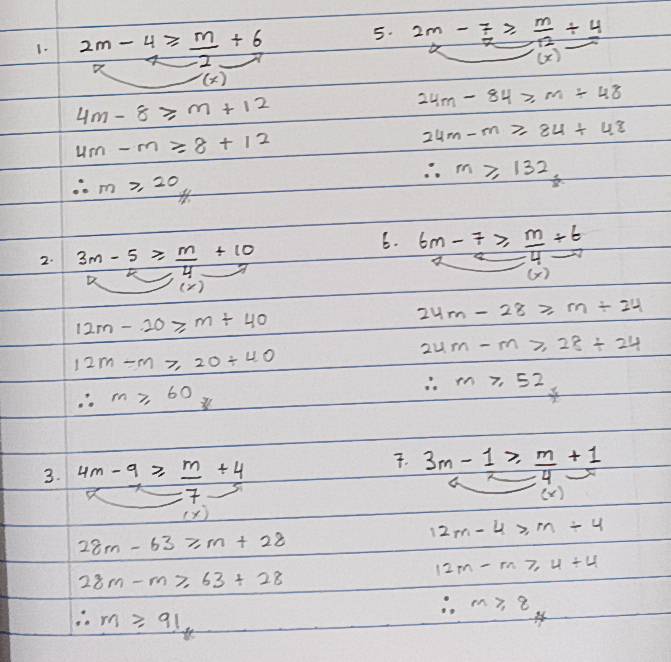 1. 2m - 4 ≥ m/2 + 6
(x)
4m - 8 ≥ m + 12
4m - m ≥ 8 + 12
∴ m ≥ 20
2. 3m - 5 ≥ m/4 + 10
(x)
12m - 20 ≥ m + 40
12m - m ≥ 20 + 40
∴ m ≥ 60
3. 4m - 9 ≥ m/7 + 4
(x)
28m - 63 ≥ m + 28
28m - m ≥ 63 + 28
∴ m ≥ 91
5. 2m - 7 ≥ m/12 + 4
(x)
24m - 84 ≥ m + 48
24m - m ≥ 84 + 48
∴ m ≥ 132
6. 6m - 7 ≥ m/4 + 6
(x)
24m - 28 ≥ m + 24
24m - m ≥ 28 + 24
∴ m ≥ 52
7. 3m - 1 ≥ m/4 + 1
(x)
12m - 4 ≥ m + 4
12m - m ≥ 4 + 4
∴ m ≥ 8